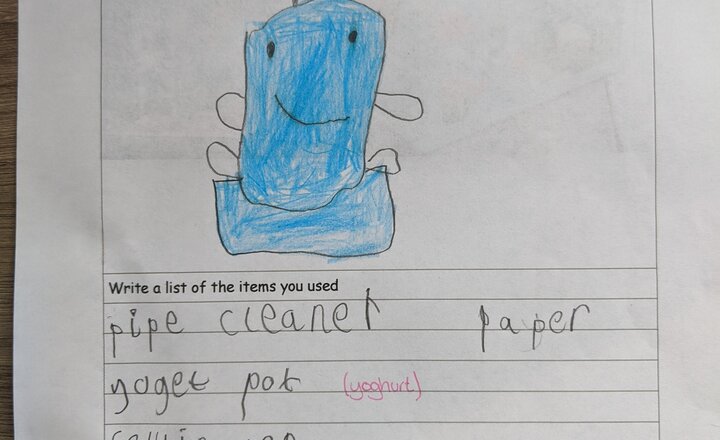 Write a list of the items you used
pipe cleaner paper
yoget pot (yoghurt)